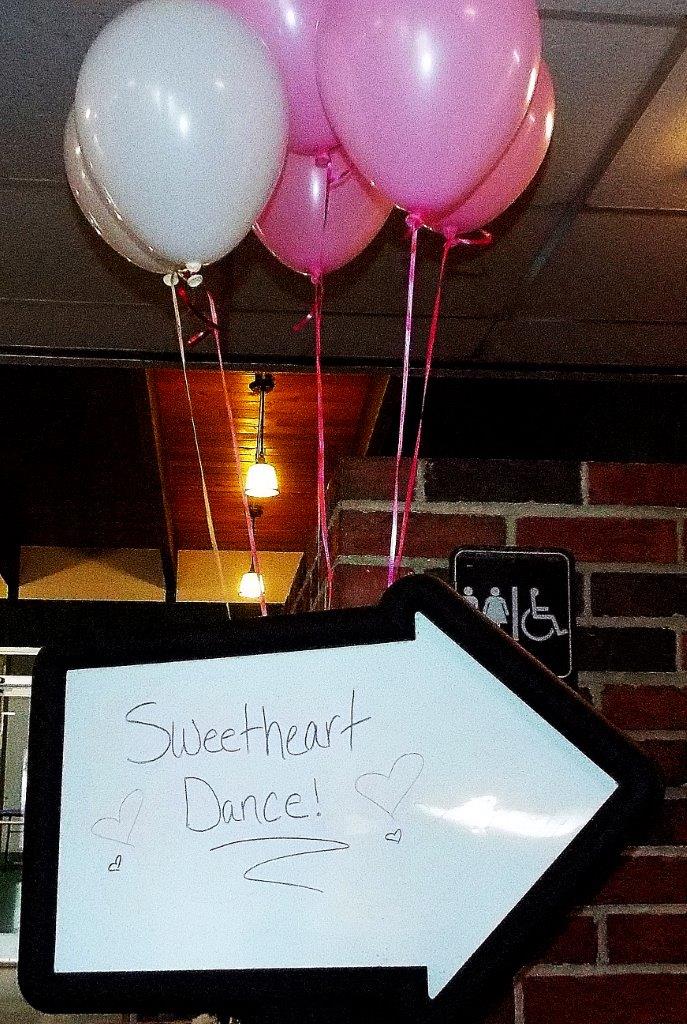 Sweetheart
Dance!